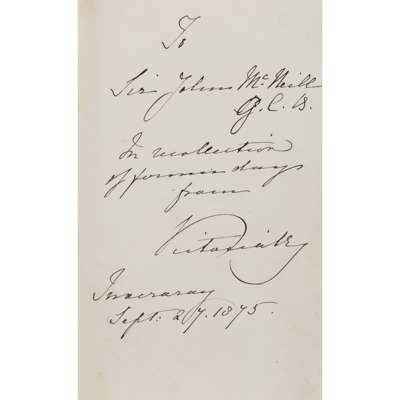 To
Sir John McNeill
G.C.B.
In recollection
of former days
from
Victoria R
Inveraray
Sept: 27. 1875.